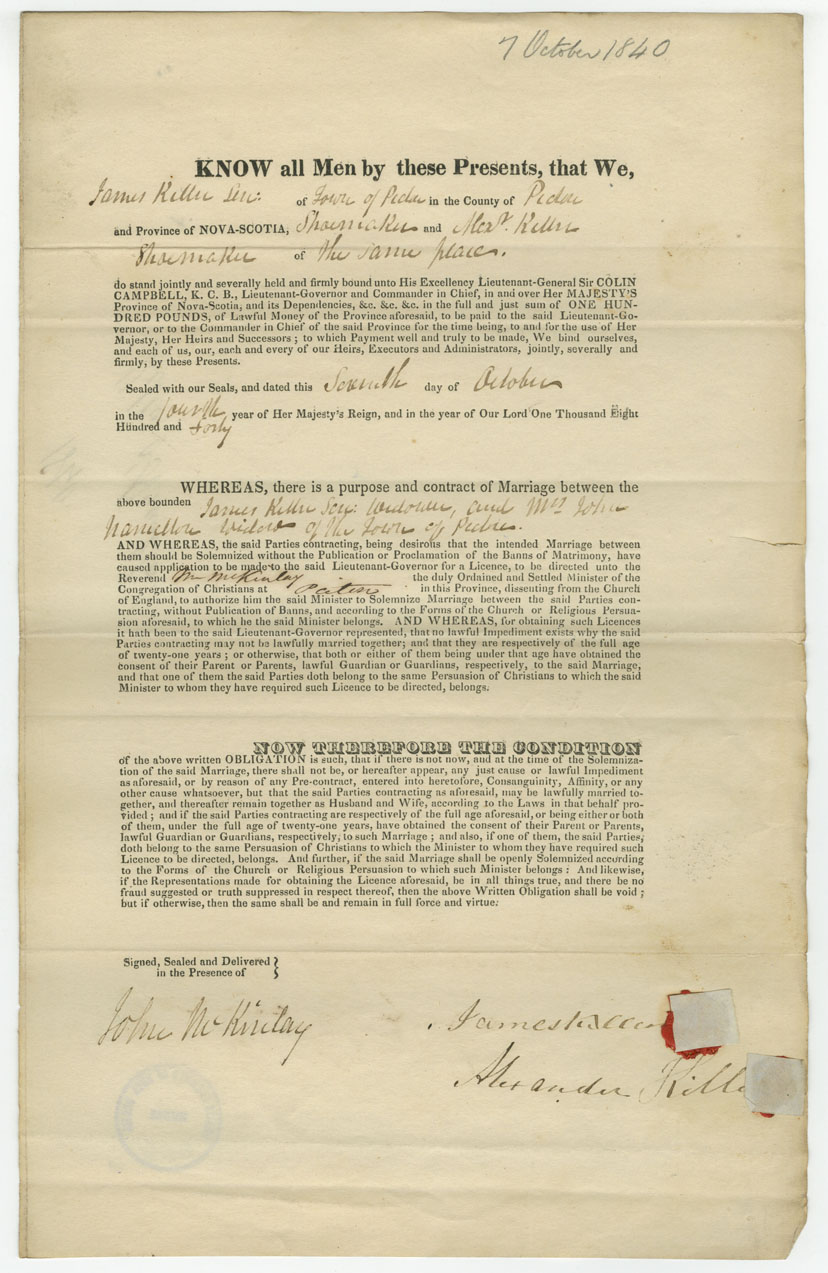 7 October 1840
KNOW all Men by these Presents, that We,
James Killer Senr. of Town of Pictou in the County of Pictou
and Province of NOVA-SCOTIA, Shoemaker and Alexr. Killer
Shoemaker of the same place.
do stand jointly and severally held and firmly bound unto His Excellency Lieutenant-General Sir COLIN
CAMPBELL, K. C. B., Lieutenant-Governor and Commander in Chief, in and over Her MAJESTY'S
Province of Nova-Scotia, and its Dependencies, &c. &c. &c. in the full and just sum of ONE HUN-
DRED POUNDS, of Lawful Money of the Province aforesaid, to be paid to the said Lieutenant-Go-
vernor, or to the Commander in Chief of the said Province for the time being, to and for the use of Her
Majesty, Her Heirs and Successors ; to which Payment well and truly to be made, We bind ourselves,
and each of us, our, each and every of our Heirs, Executors and Administrators, jointly, severally and
firmly, by these Presents.
Sealed with our Seals, and dated this Seventh day of October
in the fourth year of Her Majesty's Reign, and in the year of Our Lord One Thousand Eight
Hundred and Forty
WHEREAS, there is a purpose and contract of Marriage between the
above bounden James Killer Senr. Widower, and Mrs. John
Hamilton Widow of the Town of Pictou.
AND WHEREAS, the said Parties contracting, being desirous that the intended Marriage between
them should be Solemnized without the Publication or Proclamation of the Banns of Matrimony, have
caused application to be made to the said Lieutenant-Governor for a Licence, to be directed unto the
Reverend Mr McKinlay the duly Ordained and Settled Minister of the
Congregation of Christians at Pictou in this Province, dissenting from the Church
of England, to authorize him the said Minister to Solemnize Marriage between the said Parties con-
tracting, without Publication of Banns, and according to the Forms of the Church or Religious Persua-
sion aforesaid, to which he the said Minister belongs. AND WHEREAS, for obtaining such Licences
it hath been to the said Lieutenant-Governor represented, that no lawful Impediment exists why the said
Parties contracting may not be lawfully married together; and that they are respectively of the full age
of twenty-one years ; or otherwise, that both or either of them being under that age have obtained the
consent of their Parent or Parents, lawful Guardian or Guardians, respectively, to the said Marriage,
and that one of them the said Parties doth belong to the same Persuasion of Christians to which the said
Minister to whom they have required such Licence to be directed, belongs.
NOW THEREFORE THE CONDITION
of the above written OBLIGATION is such, that if there is not now, and at the time of the Solemniza-
tion of the said Marriage, there shall not be, or hereafter appear, any just cause or lawful Impediment
as aforesaid, or by reason of any Pre-contract, entered into heretofore, Consanguinity, Affinity, or any
other cause whatsoever, but that the said Parties contracting as aforesaid, may be lawfully married to-
gether, and thereafter remain together as Husband and Wife, according to the Laws in that behalf pro-
vided ; and if the said Parties contracting are respectively of the full age aforesaid, or being either or both
of them, under the full age of twenty-one years, have obtained the consent of their Parent or Parents,
lawful Guardian or Guardians, respectively, to such Marriage ; and also, if one of them, the said Parties,
doth belong to the same Persuasion of Christians to which the Minister to whom they have required such
Licence to be directed, belongs. And further, if the said Marriage shall be openly Solemnized according
to the Forms of the Church or Religious Persuasion to which such Minister belongs : And likewise,
if the Representations made for obtaining the Licence aforesaid, be in all things true, and there be no
fraud suggested or truth suppressed in respect thereof, then the above Written Obligation shall be void ;
but if otherwise, then the same shall be and remain in full force and virtue.
Signed, Sealed and Delivered
in the Presence of
John McKinlay
James Killer
Alexander Kille